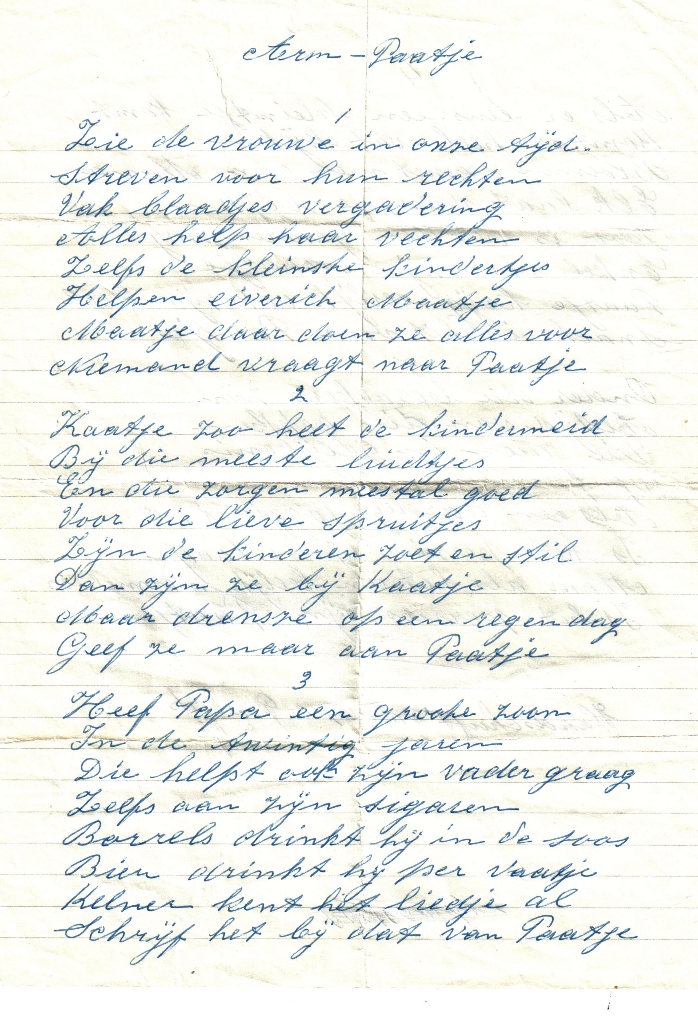 Arm - Paatje
1
Zie de vrouwe in onze tijd.
Streven voor hun rechten
Vak blaadjes vergadering
Alles help haar vechten
Zelfs de kleinste kindertjes
Helpen eiverich Maatje
Maatje daar doen ze alles voor
Niemand vraagt naar Paatje
2
Kaatje zoo heet de kindermeid
Bij die meeste luidtjes
En die zorgen meestal goed
Voor die lieve spruitjes
Zijn de kinderen zoet en stil
Dan zijn ze bij Kaatje
Maar drensze op een regendag
Geef ze maar aan Paatje
3
Heef Papa een groote zoon
In de twintig jaren
Die helpt ook zijn vader graag
Zelfs aan zijn sigaren
Borrels drinkt hij in de soos
Bier drinkt hij per vaatje
Kelner kent het liedje al
Schrijf het bij dat van Paatje